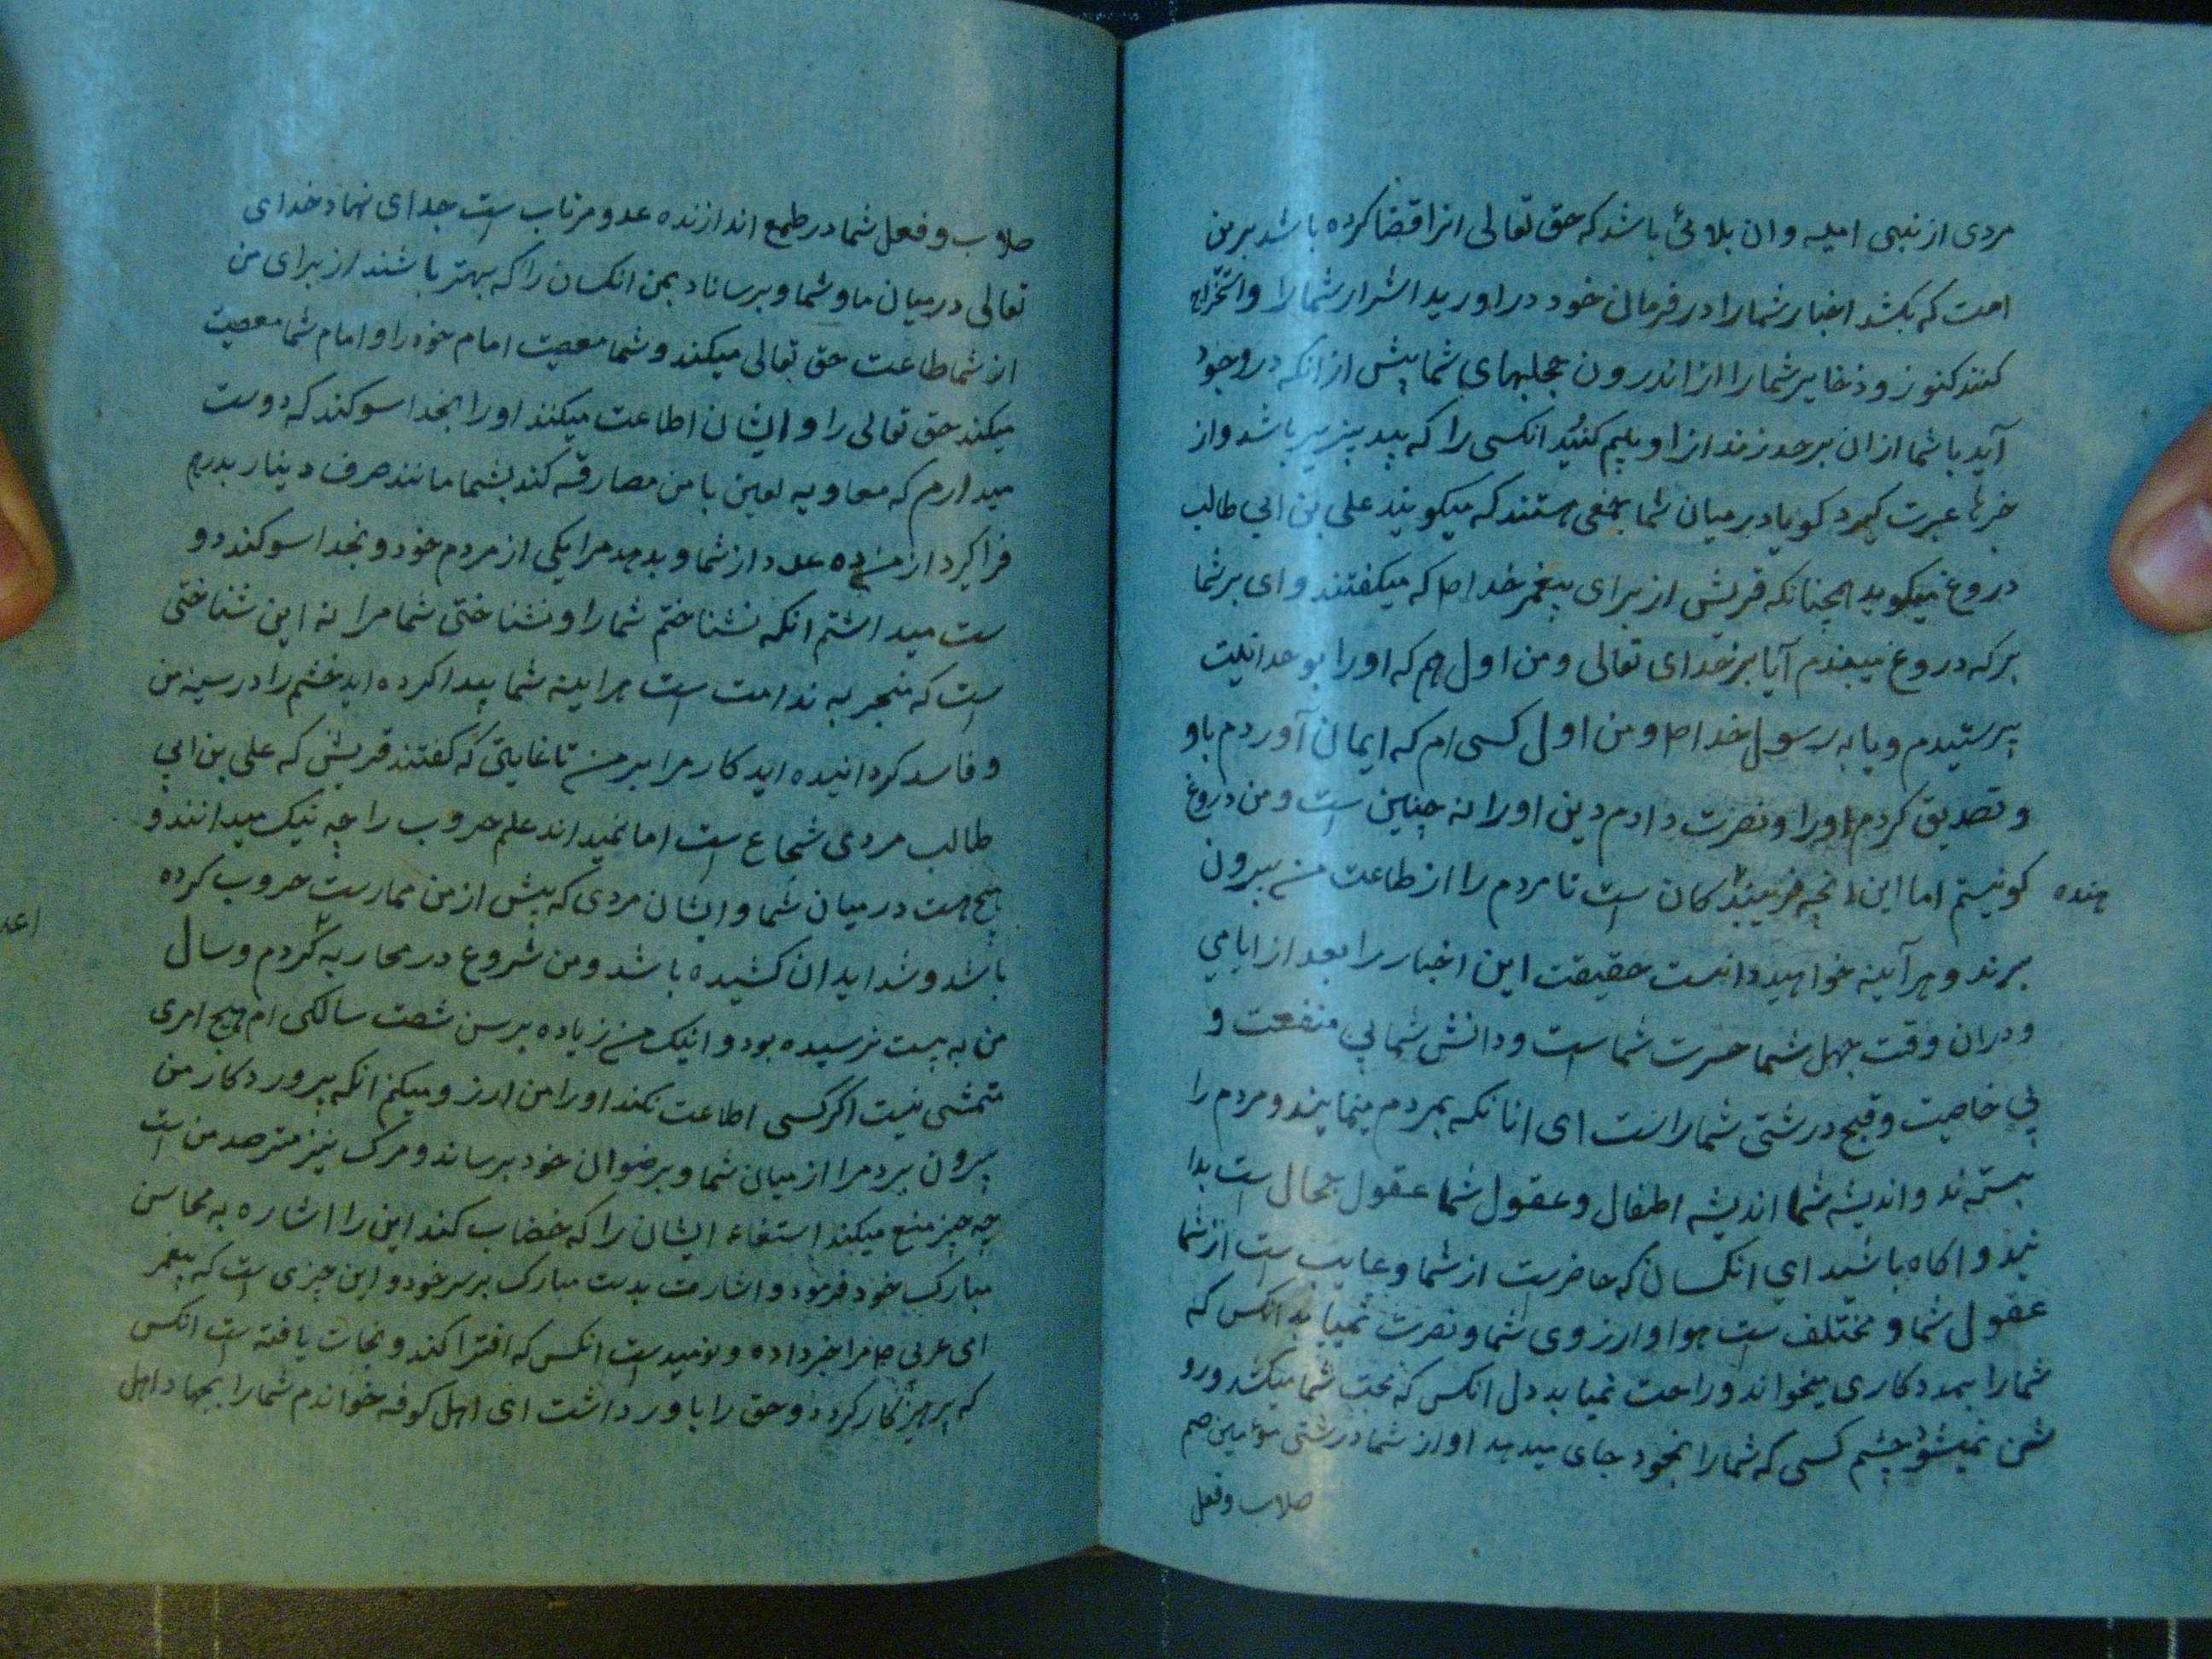 مردی از بنی امیه و ان بلائی باشد که حق تعالی انرا قضا کرده باشد برین
امت که بکشد اخیار شما را در فرمان خود دراورید اشرار شما را و استخراج
کنند کنوز و ذخایر شما را از اندرون حجلهای شما پیش از انکه در وجود
آید با شما از ان برحد زند انرا و بیم کنید انکسی را که پند پزیر باشد و از
خبرها عبرت گیرد کویا در میان شما بعضی هستند که میکویند علی بن ابی طالب
دروغ میکوید همچنانکه قریش از برای پیغمبر خدا ص که میکفتند وای بر شما
بر که دروغ میبندم آیا بر خدای تعالی و من اول م که او را بوحدانیت
پرستیدم و یا به رسول خدا ص و من اول کسی ام که ایمان آوردم باو
و تصدیق کردم او را و نصرت دادم دین او را نه چنین است و من دروغ
کو نیستم اما این انچه فریبند کان است تا مردم را از طاعت من بیرون
هنده
برند و هر آینه خواهید دانست حقیقت این اخبار را بعد از ایامی
و دران وقت جهل شما حسرت شماست و دانش شما بی منفعت و
بی خاصیت و قبح در شتی شما راست ای انانکه بمردم مینمایند و مردم را
بسته ند و اندیشه شما اندیشه اطفال و عقول شما عقول حجال است بدا
نید و اکاه باشید ای انکسان که حاضر ست از شما و غایب ست از شما
عقول شما و مختلف ست هوا و ارزوی شما و نصرت نمییابد انکس که
شما را بمدد کاری میخواند و راحت نمیابد دل انکس که تحت شما میکشد و رو
شن نمیشود چشم کسی که شما را بخود جای میدهد اواز شما درشتی صم
صلاب و فعل
صلاب و فعل شما در طمع اندازنده عدو مرتاب است جدای نهاد خدای
تعالی در میان ما و شما و برساناد بمن انکسان را که بهتر باشند از برای من
از شما طاعت حق تعالی میکند و شما معصیت امام خود را و امام شما معصیت
میکند حق تعالی را و ایشان اطاعت میکنند او را بخدا سوکند که دوست
میدارم که معاویه لعین با من مصارفه کند بشما مانند صرف دینار بدرهم
فرا کیرد از من ده عدد از شما و بدهد مرا یکی از مردم خود و بخدا سوکند دو
ست میداشتم انکه نشناختم شما را و نشناختی شما مرا نه این شناختی
است که منجر به ندامت است هراینه شما پیدا کرده اید خشم را در سینه من
و فاسد کردانیده اید کار مرا بر من تا غایتی که کفتند قریش که علی بن ابی
طالب مردی شجاع است اما نمیداند علم حروب را چه نیک میدانند و
هیچ هست در میان شما و ایشان مردی که پیش از من ممارست حروب کرده
باشد و شداید ان کشیده باشد و من شروع در محاربه کردم و سال
من به بیست نرسیده بود و اینک من زیاده بر سن شصت سالکی ام هیچ امری
متمشی نیست اکر کسی اطاعت نکند او را من ارزو میکنم انکه پرورد کار من
بیرون برد مرا از میان شما و برضوان خود برساند و مرک نیز مترصد من است
چه چیز منع میکند استفاء ایشان را که خضاب کند این را اشاره به محاسن
مبارک خود فرمود و اشارت بدست مبارک بر سر خود و این چیزی است که پیغمبر
امی عربی ص مرا خبر داده و نومید است انکس که افترا کند و نجات یافته است انکس
که پرهیز کار کردد و حق را باور داشت ای اهل کوفه خواندم شما را بجهاد اهل